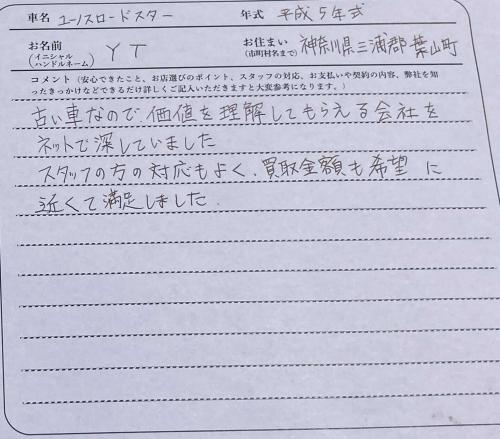 車名 ユーノスロードスター 年式 平成5年式
お名前 (イニシャル ハンドルネーム) YT お住まい (市町村名まで) 神奈川県三浦郡葉山町
コメント(安心できたこと、お店選びのポイント、スタッフの対応、お支払いや契約の内容、弊社を知
ったきっかけなどできるだけ詳しくご記入いただきますと大変参考になります。)
古い車なので、価値を理解してもらえる会社を
ネットで深していました
スタッフの方の対応もよく、買取金額も希望に
近くて満足しました.